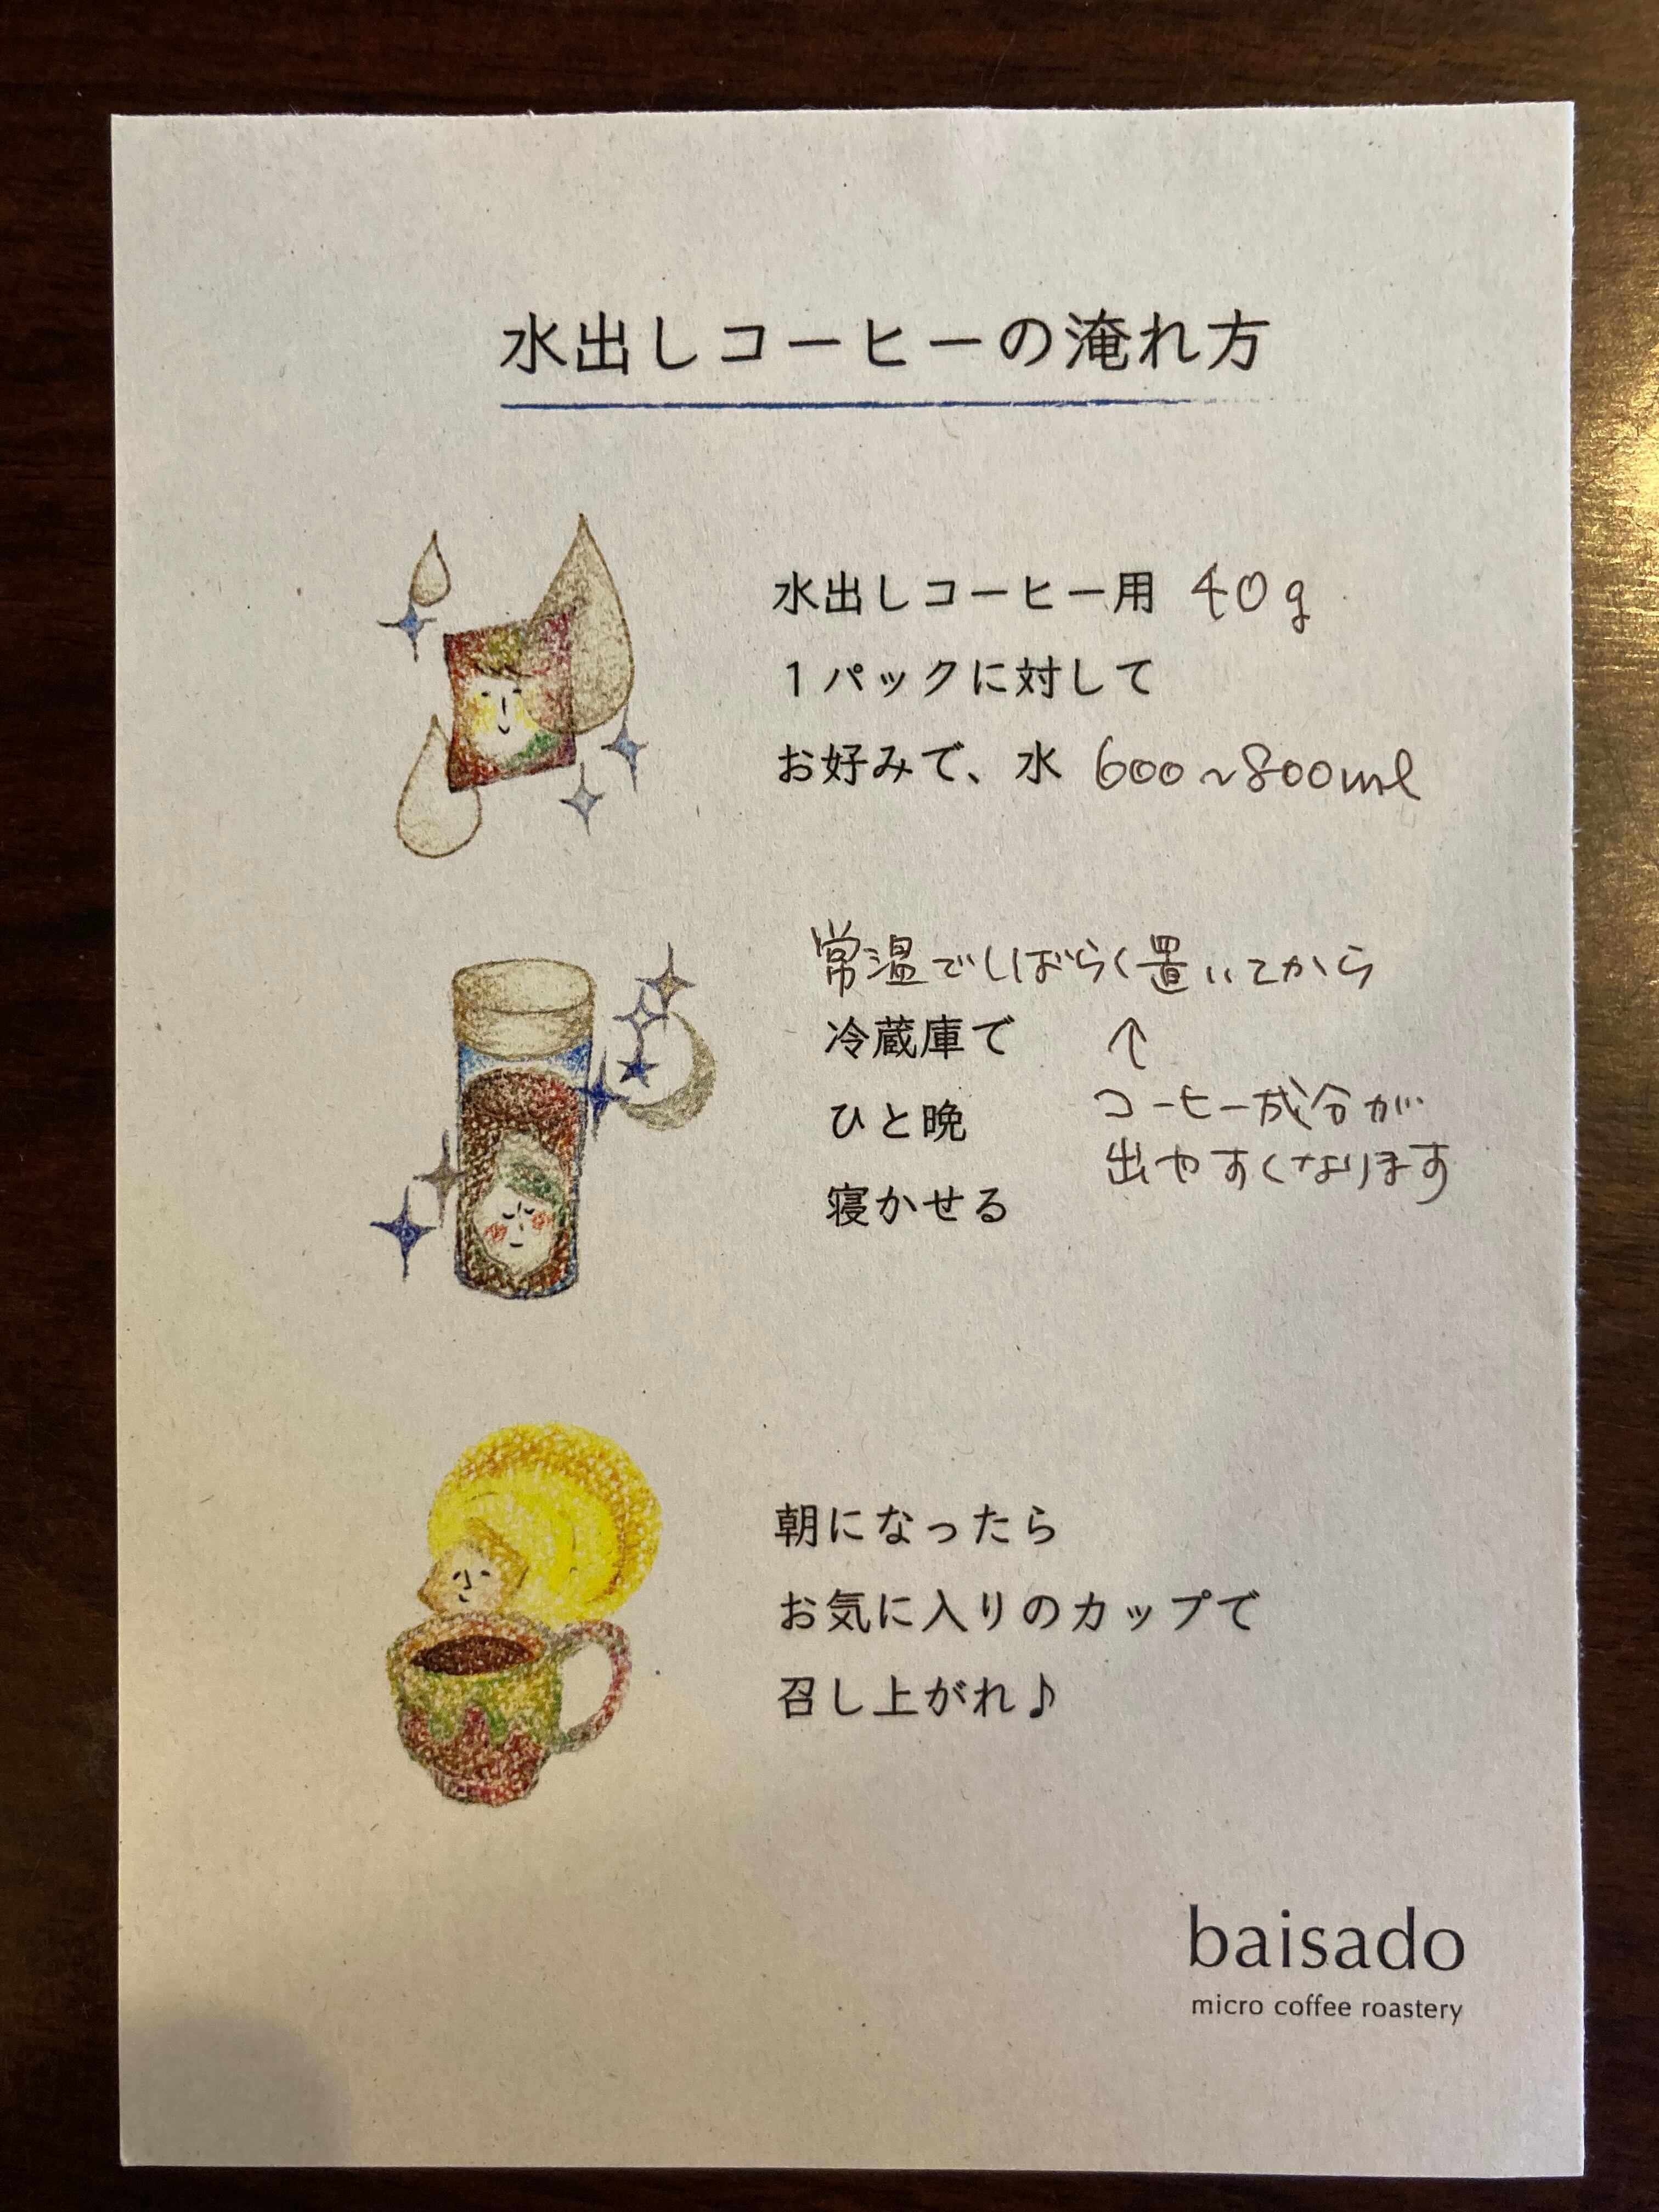 水出しコーヒーの淹れ方
水出しコーヒー用 40g
1パックに対して
お好みで、水 600~800ml
常温でしばらく置いてから
冷蔵庫で
ひと晩
寝かせる
↑
コーヒー成分が
出やすくなります
朝になったら
お気に入りのカップで
召し上がれ♪
baisado
micro coffee roastery